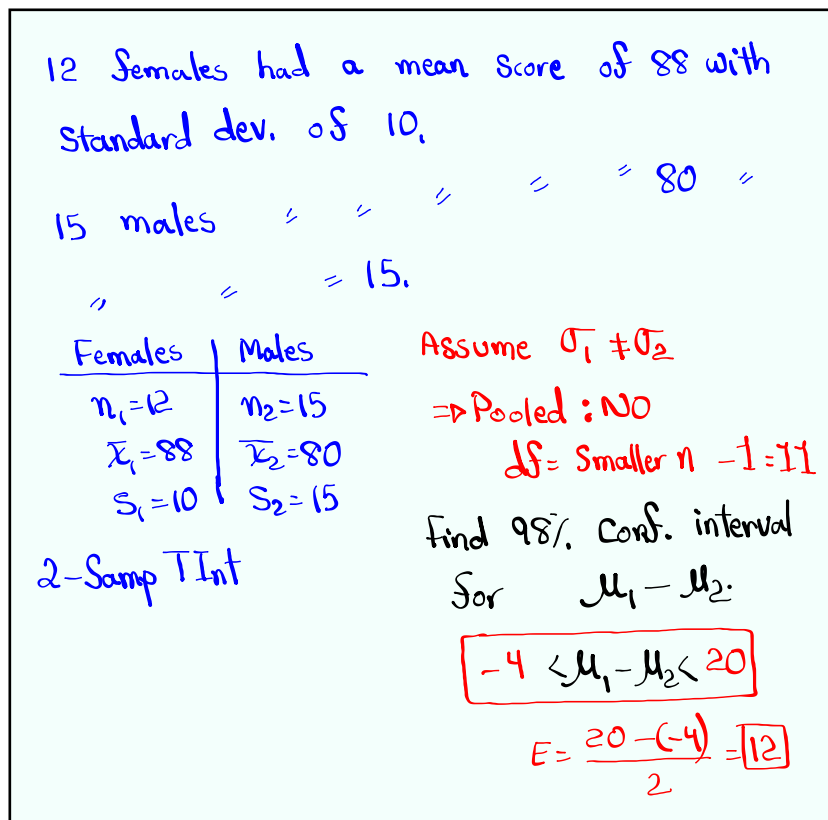 12 females had a mean score of 88 with
standard dev. of 10.
15 males " " " " " 80 "
" " " 15.
Females | Males
n₁=12 n₂=15
x̄₁=88 x̄₂=80
S₁=10 S₂=15
2-Samp TInt
Assume σ₁ ≠ σ₂
⇒ Pooled : NO
df = Smaller n -1 = 11
Find 98% Conf. interval
for μ₁ - μ₂.
-4 < μ₁ - μ₂ < 20
E = (20-(-4))/2 = 12